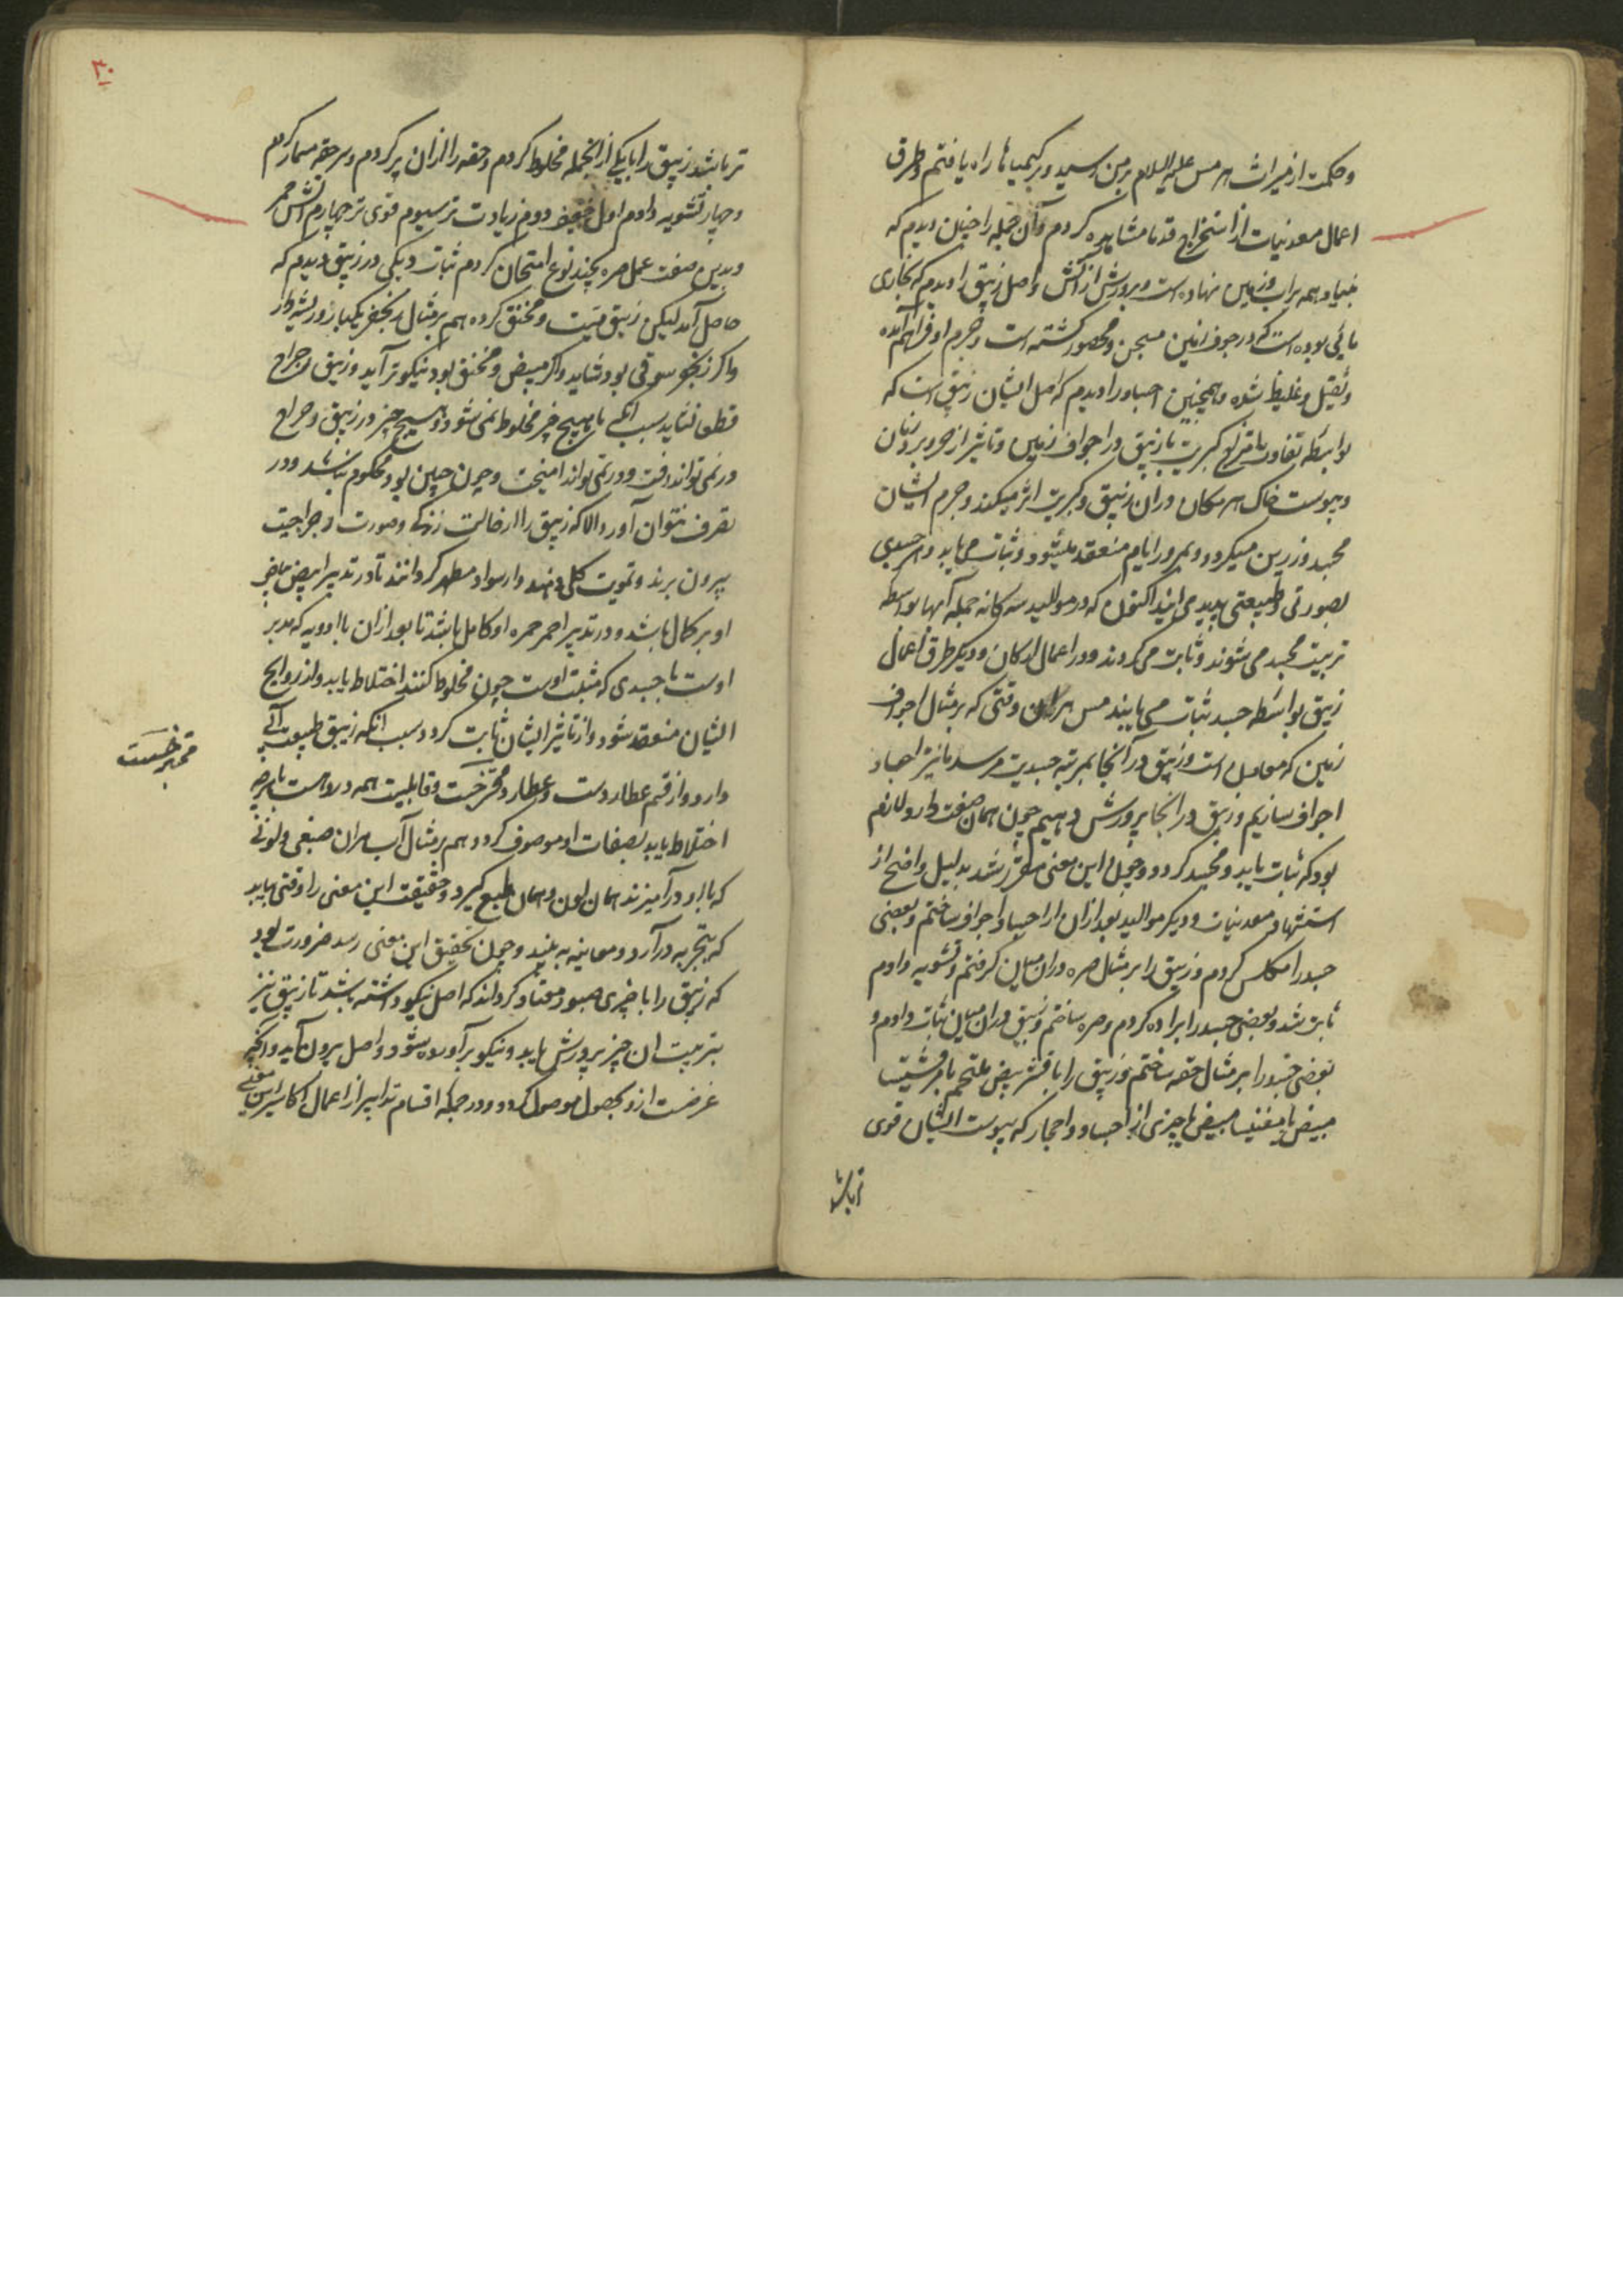 وحکمت از میراث هرمس علیه السلام بمن رسید و بر کیمیاها راه یافتم وطرق
اعمال معدنیات از استخراج قدما مشاهده کردم وآن جمله را چنان دیدم که
بنیاد همه بر آب وزمین نهاده است و پرورش از آتش واصل زیبق را دیدم که بخاری
مائی بوده است که در جوف زمین مسجن ومحصور کشته است وجرم او فراهم آمده
وثقیل وغلیظ شده وهمچنین اجساد را دیدم که اصل ایشان زیبق است که
بواسطه تفاوت امتزاج کبریت با زیبق در اجواف زمین وتاثیر از حر وبرد زمان
ویبوست خاک هر مکان در آن زیبق وکبریت اثر میکند وجرم ایشان
مجسد ورزین میکردد وبمرور ایام منعقد میشود وثبات می یابد وهر جسدی
بصورتی وطبیعتی پدید می آیند اکنون که در موالید سه کانه جمله آنها بواسطه
تربیت مجسد می شوند وثابت می کردند ودر اعمال ارکان ودیکر طرق اعمال
زیبق بواسطه جسد ثبات می یابند پس هر وقتی که بر مثال اجواف
زمین که معادل است وزیبق در آنجا بمرتبه جسدیت میرسد ما نیز اجساد
اجواف سازیم وزیبق در آنجا پرورش دهیم چون همان صفت دارد لازم
بود که ثبات یابد ومجسد کردد وچون این معنی مقرر شد بدلیل واضح از
استشهاد معدنیات ودیکر موالید بعد از آن از اجساد اجواف ساختم وبعضی
جسد را مکلس کردم وزیبق را بر مثل صره در آن میان کرفتم وتشویه دادم
ثابت شد وبعضی جسد را براده کردم وصره ساختم وزیبق در آن میان ثبات دادم و
بعضی جسد را بر مثال حقه ساختم وزیبق را با قشر بیض ملتحم یا مرقشیشا
مبیض یا مغنیسا مبیض یا چیزی از اجساد واحجار که یبوست ایشان قوی
تر باشد
۳۰
تر باشد زیبق را با یکی از آنجمله مخلوط کردم وحقه را از آن پر کردم وسر حقه مسمار کردم
وچهار تشویه دادم اول خفیف دوم زیادت تر سیوم قوی تر چهارم آتش جمر
وبدین صفت عمل صره بچند نوع امتحان کردم ثبات دیکی در زیبق دیدم که
حاصل آمد لیکن زیبق میت ومخنق کرده هم بر مثال
واکر زنجفر سوقی بود شاید واکر مبیض ومخنق بود نیکوتر آید وزیبق رجراج
قطعا نشاید سبب آنکه با هیچ چیز مخلوط نمی شود وهیچ چیز در زیبق رجراج
در نمی تواند رفت ودر نمی تواند آمیخت وچون چنین بود محکوم نباشد ودر
تصرف نتوان آورد الا که زیبق را از حالت زندکی وصورت رجراجیت
بیرون برند وتمویت کلی دهند واز سواد مطهر کردانند تا در تدبیر ابیض بیاض
او بر کمال باشد ودر تدبیر احمر حمره او کامل باشد تا بعد از آن با ادویه که مدبر
اوست با جسدی که مثبت اوست چون مخلوط کنند اختلاط یابد واز روایح
ایشان منعقد شود واز تاثیر ایشان ثابت کردد سبب آنکه زیبق طبیعت آبی
دارد واز قسم عطاردست وعطارد ممتزجست وقابلیت همه دروست با هر چه
اختلاط یابد بصفات او موصوف کردد هم بر مثال آب هر آن صبغی ولونی
که با او در آمیزند همان لون وهمان طبع کیرد وحقیقت این معنی را وقتی یابد
که بتجربه در آرد ومعاینه به بیند وچون تحقیق این معنی رسد ضرورت بود
که زیبق را با چیزی صبور معتاد کردانند که اصل نیکو داشته باشد تا زیبق نیز
بتربیت آن چیز پرورش یابد ونیکو بر آورده شود واصل بیرون آید وآنچه
غرضست ازو بحصول موصول کردد ودر جمله اقسام تدابیر از اعمال اکاسیر این معنی